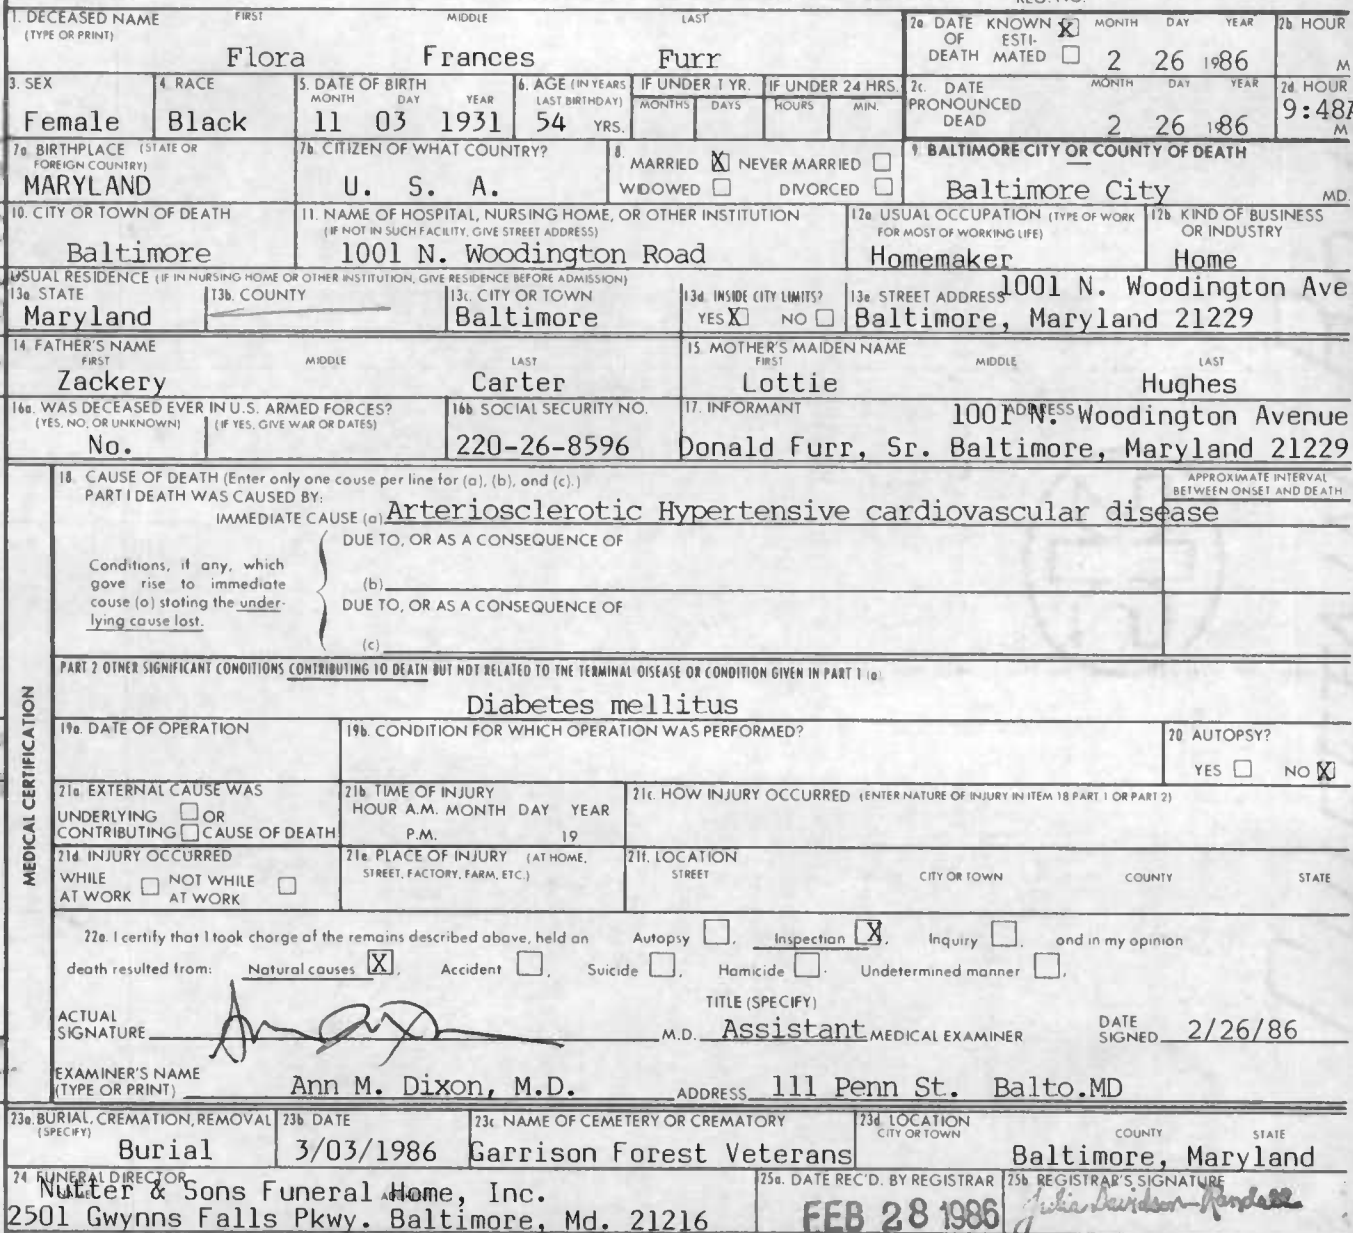 1. DECEASED NAME FIRST MIDDLE LAST
(TYPE OR PRINT)
Flora Frances Furr
2a DATE KNOWN X MONTH DAY YEAR
OF ESTI-
DEATH MATED 2 26 1986
2b HOUR
M
3. SEX
Female
4. RACE
Black
5. DATE OF BIRTH
MONTH DAY YEAR
11 03 1931
6. AGE (IN YEARS
LAST BIRTHDAY)
54 YRS.
IF UNDER 1 YR.
MONTHS DAYS
IF UNDER 24 HRS.
HOURS MIN.
2c. DATE MONTH DAY YEAR
PRONOUNCED
DEAD 2 26 1986
2d HOUR
9:48A
M
7a BIRTHPLACE (STATE OR
FOREIGN COUNTRY)
MARYLAND
7b. CITIZEN OF WHAT COUNTRY?
U. S. A.
8.
MARRIED X NEVER MARRIED
WIDOWED DIVORCED
9. BALTIMORE CITY OR COUNTY OF DEATH
Baltimore City MD.
10. CITY OR TOWN OF DEATH
Baltimore
11. NAME OF HOSPITAL, NURSING HOME, OR OTHER INSTITUTION
(IF NOT IN SUCH FACILITY, GIVE STREET ADDRESS)
1001 N. Woodington Road
12a USUAL OCCUPATION (TYPE OF WORK
FOR MOST OF WORKING LIFE)
Homemaker
12b KIND OF BUSINESS
OR INDUSTRY
Home
USUAL RESIDENCE (IF IN NURSING HOME OR OTHER INSTITUTION, GIVE RESIDENCE BEFORE ADMISSION)
13a STATE
Maryland
13b. COUNTY
13c. CITY OR TOWN
Baltimore
13d INSIDE CITY LIMITS?
YES X NO
13e STREET ADDRESS 1001 N. Woodington Ave
Baltimore, Maryland 21229
14 FATHER'S NAME
FIRST MIDDLE LAST
Zackery Carter
15 MOTHER'S MAIDEN NAME
FIRST MIDDLE LAST
Lottie Hughes
16a. WAS DECEASED EVER IN U.S. ARMED FORCES?
(YES, NO, OR UNKNOWN) (IF YES, GIVE WAR OR DATES)
No.
16b SOCIAL SECURITY NO.
220-26-8596
17. INFORMANT ADDRESS
1001 N. Woodington Avenue
Donald Furr, Sr. Baltimore, Maryland 21229
MEDICAL CERTIFICATION
18 CAUSE OF DEATH (Enter only one cause per line for (a), (b), and (c).)
PART I DEATH WAS CAUSED BY:
APPROXIMATE INTERVAL
BETWEEN ONSET AND DEATH
IMMEDIATE CAUSE (a) Arteriosclerotic Hypertensive cardiovascular disease
DUE TO, OR AS A CONSEQUENCE OF
Conditions, if any, which
gave rise to immediate
cause (a) stating the under-
lying cause last.
(b)
DUE TO, OR AS A CONSEQUENCE OF
(c)
PART 2 OTHER SIGNIFICANT CONDITIONS CONTRIBUTING TO DEATH BUT NOT RELATED TO THE TERMINAL DISEASE OR CONDITION GIVEN IN PART 1 (a)
Diabetes mellitus
19a. DATE OF OPERATION
19b. CONDITION FOR WHICH OPERATION WAS PERFORMED?
20 AUTOPSY?
YES NO X
21a EXTERNAL CAUSE WAS
UNDERLYING OR
CONTRIBUTING CAUSE OF DEATH
21b TIME OF INJURY
HOUR A.M. MONTH DAY YEAR
P.M. 19
21c. HOW INJURY OCCURRED (ENTER NATURE OF INJURY IN ITEM 18 PART 1 OR PART 2)
21d INJURY OCCURRED
WHILE NOT WHILE
AT WORK AT WORK
21e PLACE OF INJURY (AT HOME,
STREET, FACTORY, FARM, ETC.)
21f. LOCATION
STREET CITY OR TOWN COUNTY STATE
22a. I certify that I took charge of the remains described above, held an Autopsy , Inspection X, Inquiry , and in my opinion
death resulted from: Natural causes X, Accident , Suicide , Homicide . Undetermined manner ,
ACTUAL
SIGNATURE M.D.
TITLE (SPECIFY)
Assistant MEDICAL EXAMINER
DATE
SIGNED 2/26/86
EXAMINER'S NAME
(TYPE OR PRINT) Ann M. Dixon, M.D. ADDRESS 111 Penn St. Balto.MD
23a. BURIAL, CREMATION, REMOVAL
(SPECIFY)
Burial
23b DATE
3/03/1986
23c NAME OF CEMETERY OR CREMATORY
Garrison Forest Veterans
23d LOCATION
CITY OR TOWN COUNTY STATE
Baltimore, Maryland
24 FUNERAL DIRECTOR
Nutter & Sons Funeral Home, Inc.
2501 Gwynns Falls Pkwy. Baltimore, Md. 21216
25a. DATE REC'D. BY REGISTRAR
FEB 28 1986
25b REGISTRAR'S SIGNATURE
Julia Davidson-Randall